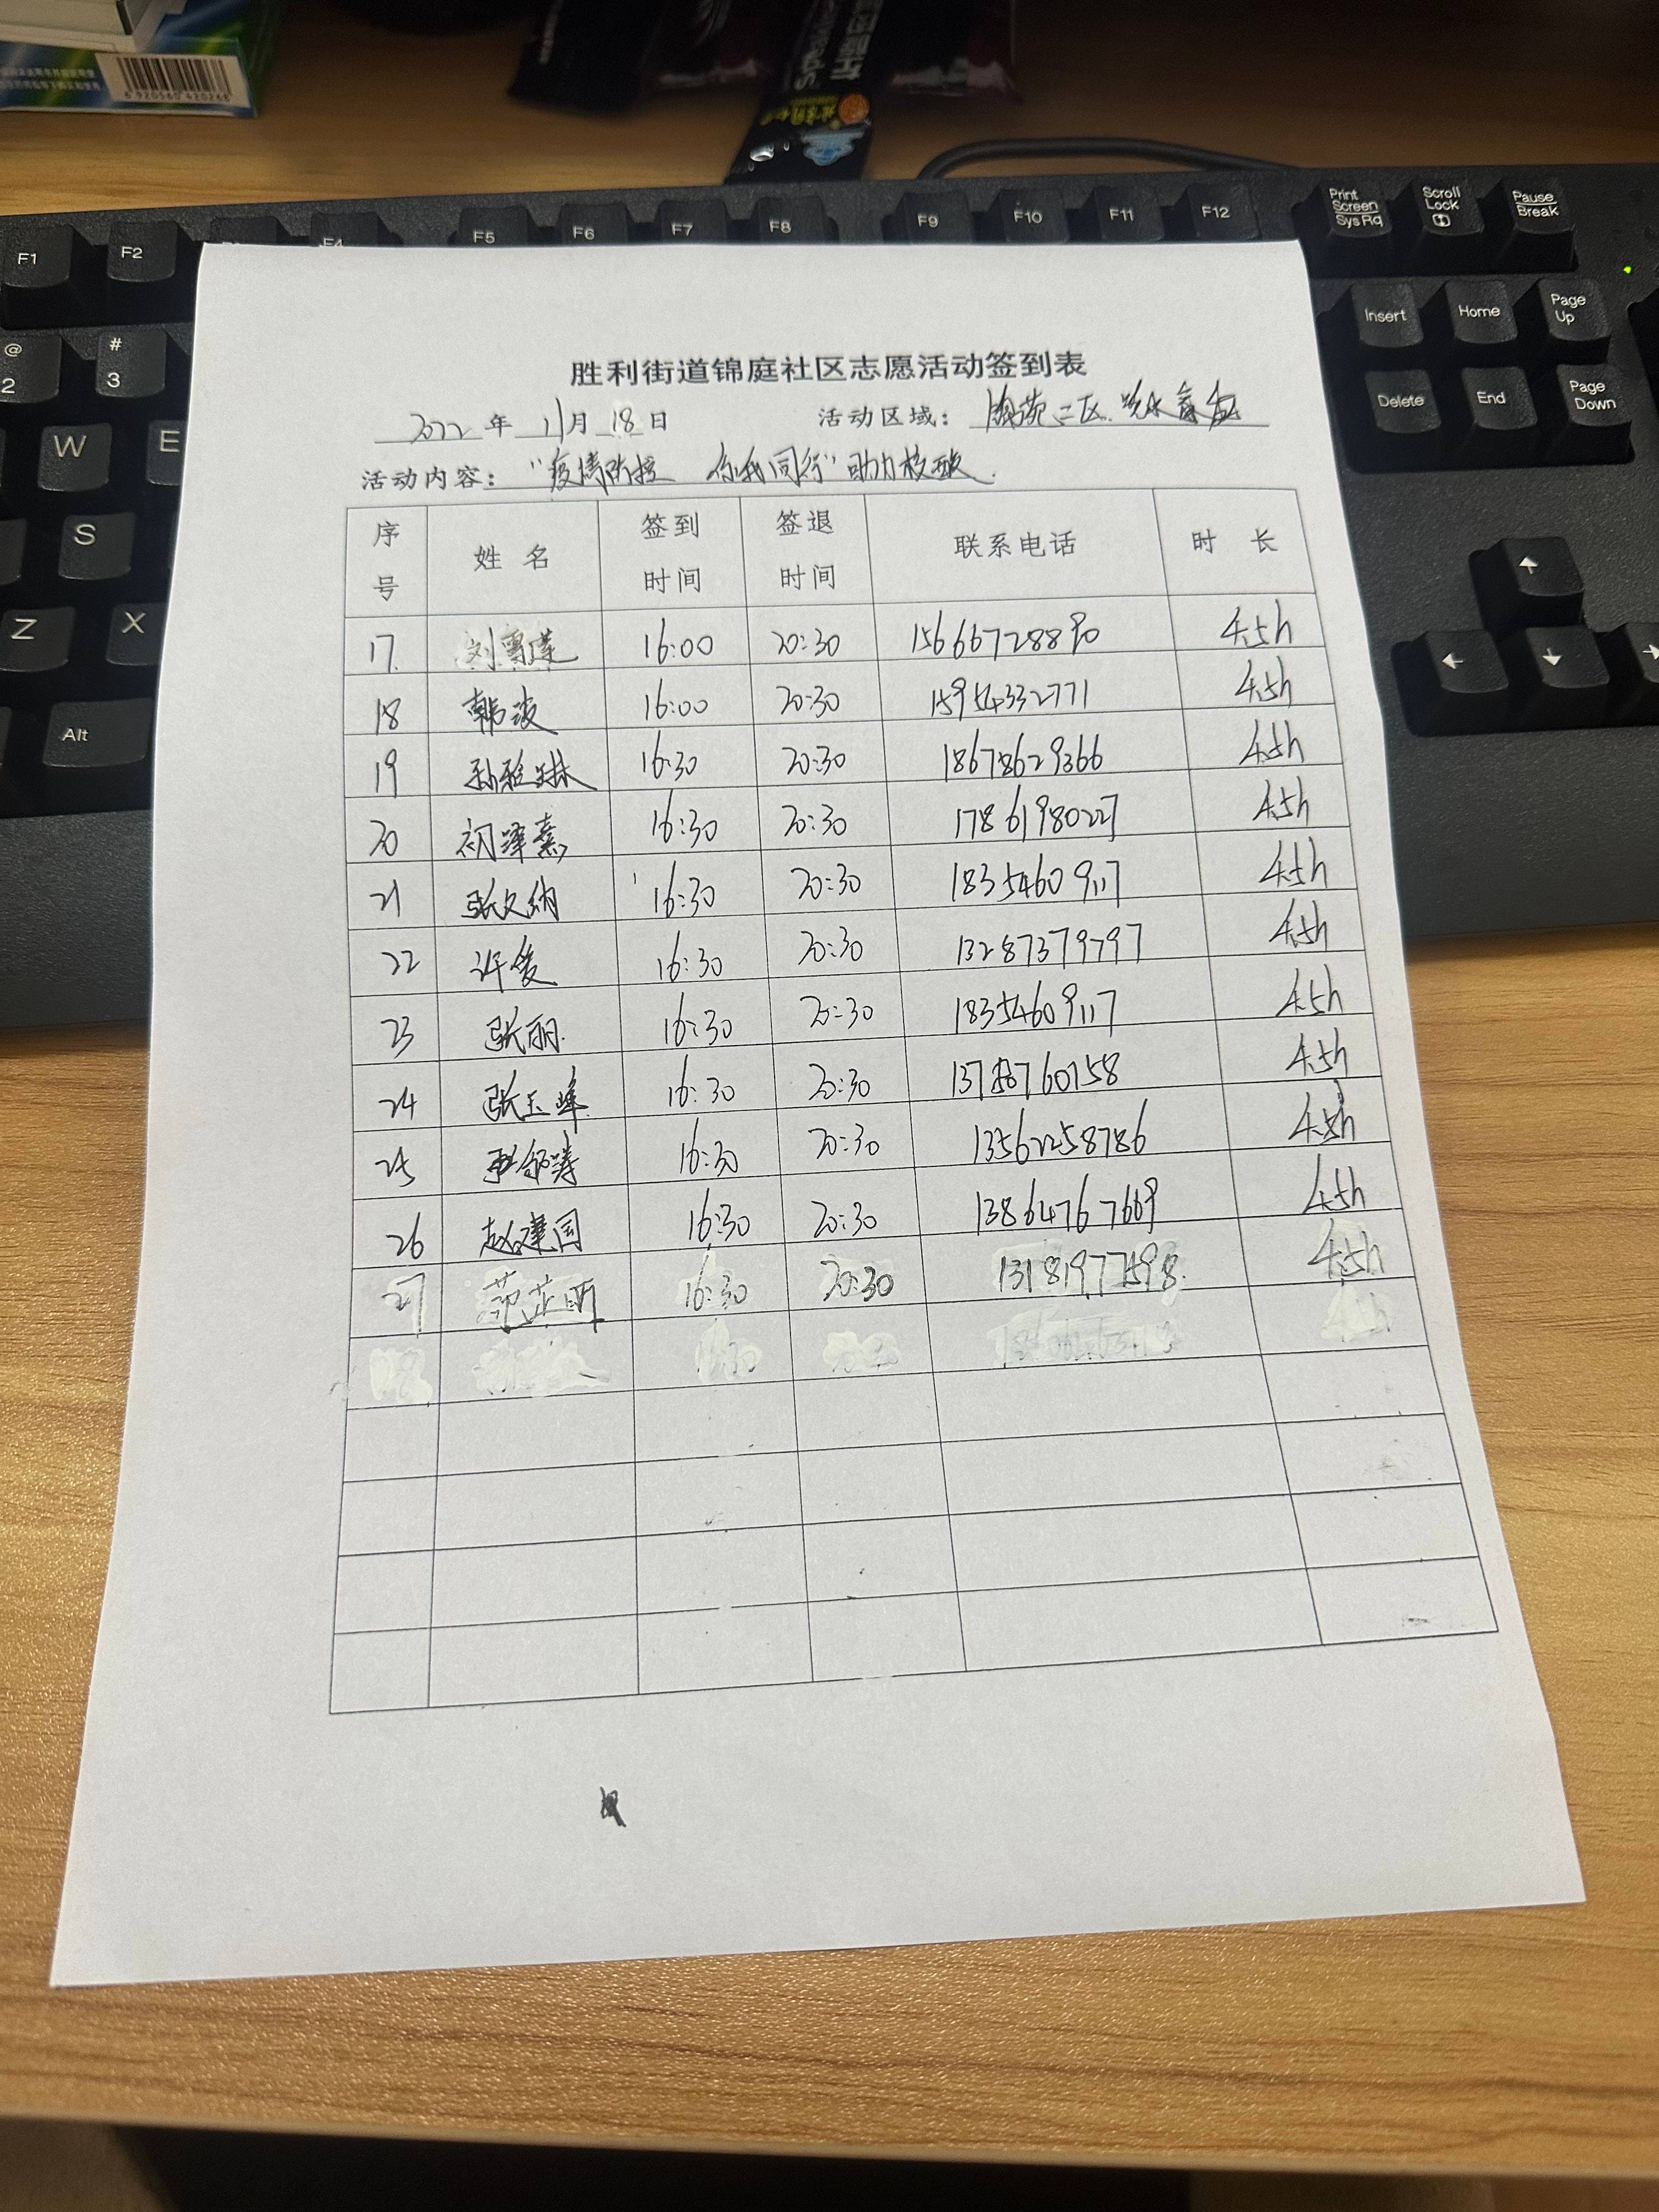 6 920560 420246
F1 F2 F4 F5 F6 F7 F8 F9 F10 F11 F12 Print Screen SysRq Scroll Lock Pause Break
@ 2 # 3 Insert Home Page Up
W E Delete End Page Down
S
Z X
Alt
胜利街道锦庭社区志愿活动签到表
2022 年 11 月 18 日 活动区域: 二区
活动内容: “疫情防控 你我同行”助力核酸.
序号 姓名 签到时间 签退时间 联系电话 时 长
17. 刘雪莲 16:00 20:30 15666728890 4.5h
18 韩波 16:00 20:30 15954332771 4.5h
19 孙雅琳 16:30 20:30 18678629366 4.5h
20 初泽熹 16:30 20:30 17861980227 4.5h
21 张文纳 16:30 20:30 18354609117 4.5h
22 许俊 16:30 20:30 13287379797 4.5h
23 张丽 16:30 20:30 18354609117 4.5h
24 张玉峰 16:30 20:30 4.5h
25 16:30 20:30 13562258786 4.5h
26 赵建国 16:30 20:30 13864767669 4.5h
27 范芷昕 16:30 20:30 13181977598. 4.5h